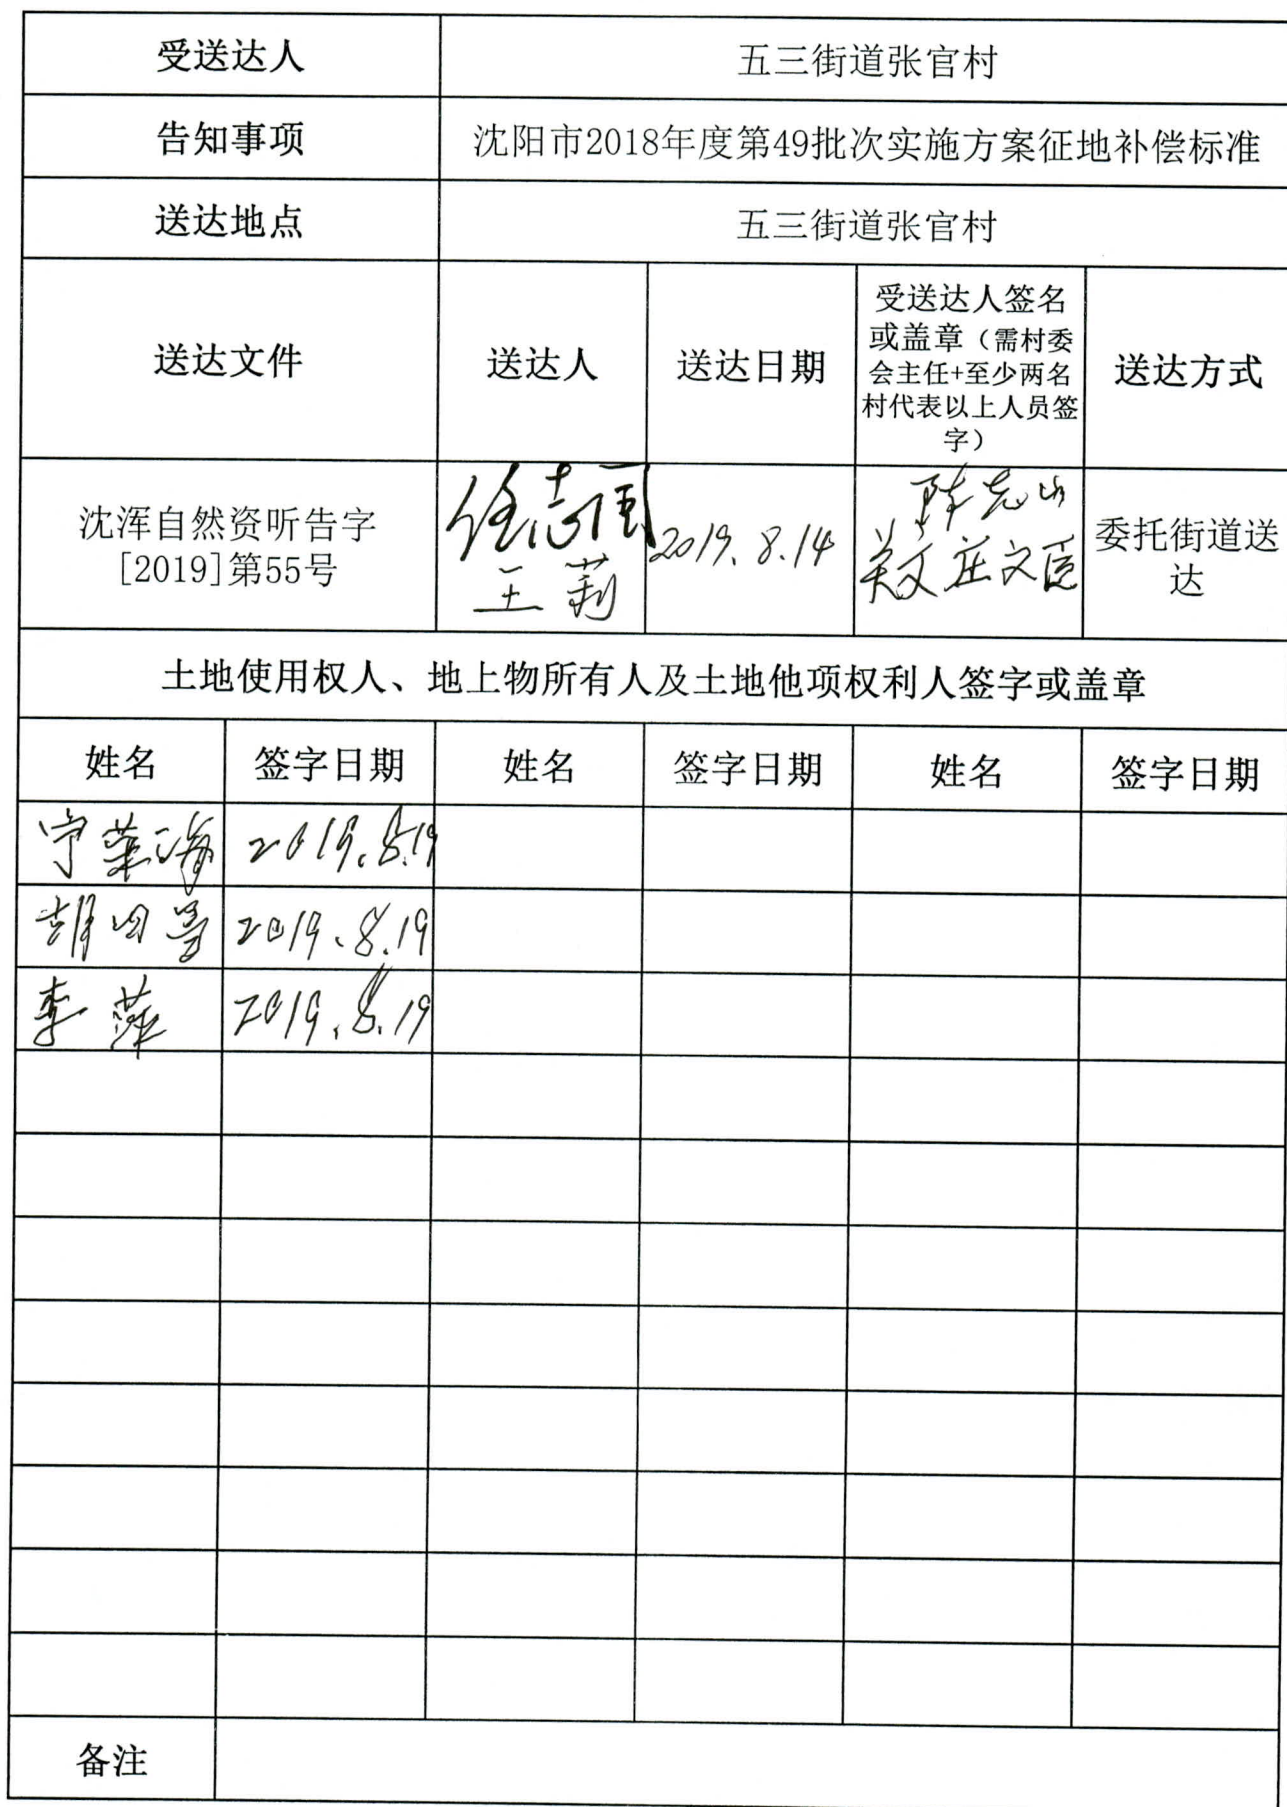 受送达人
五三街道张官村
告知事项
沈阳市2018年度第49批次实施方案征地补偿标准
送达地点
五三街道张官村
送达文件
送达人
送达日期
受送达人签名
或盖章（需村委
会主任+至少两名
村代表以上人员签
字）
送达方式
沈浑自然资听告字
[2019]第55号
任志国
王莉
2019.8.14
委托街道送
达
土地使用权人、地上物所有人及土地他项权利人签字或盖章
姓名
签字日期
姓名
签字日期
姓名
签字日期
2019.8.19
2019.8.19
李萍
2019.8.19
备注